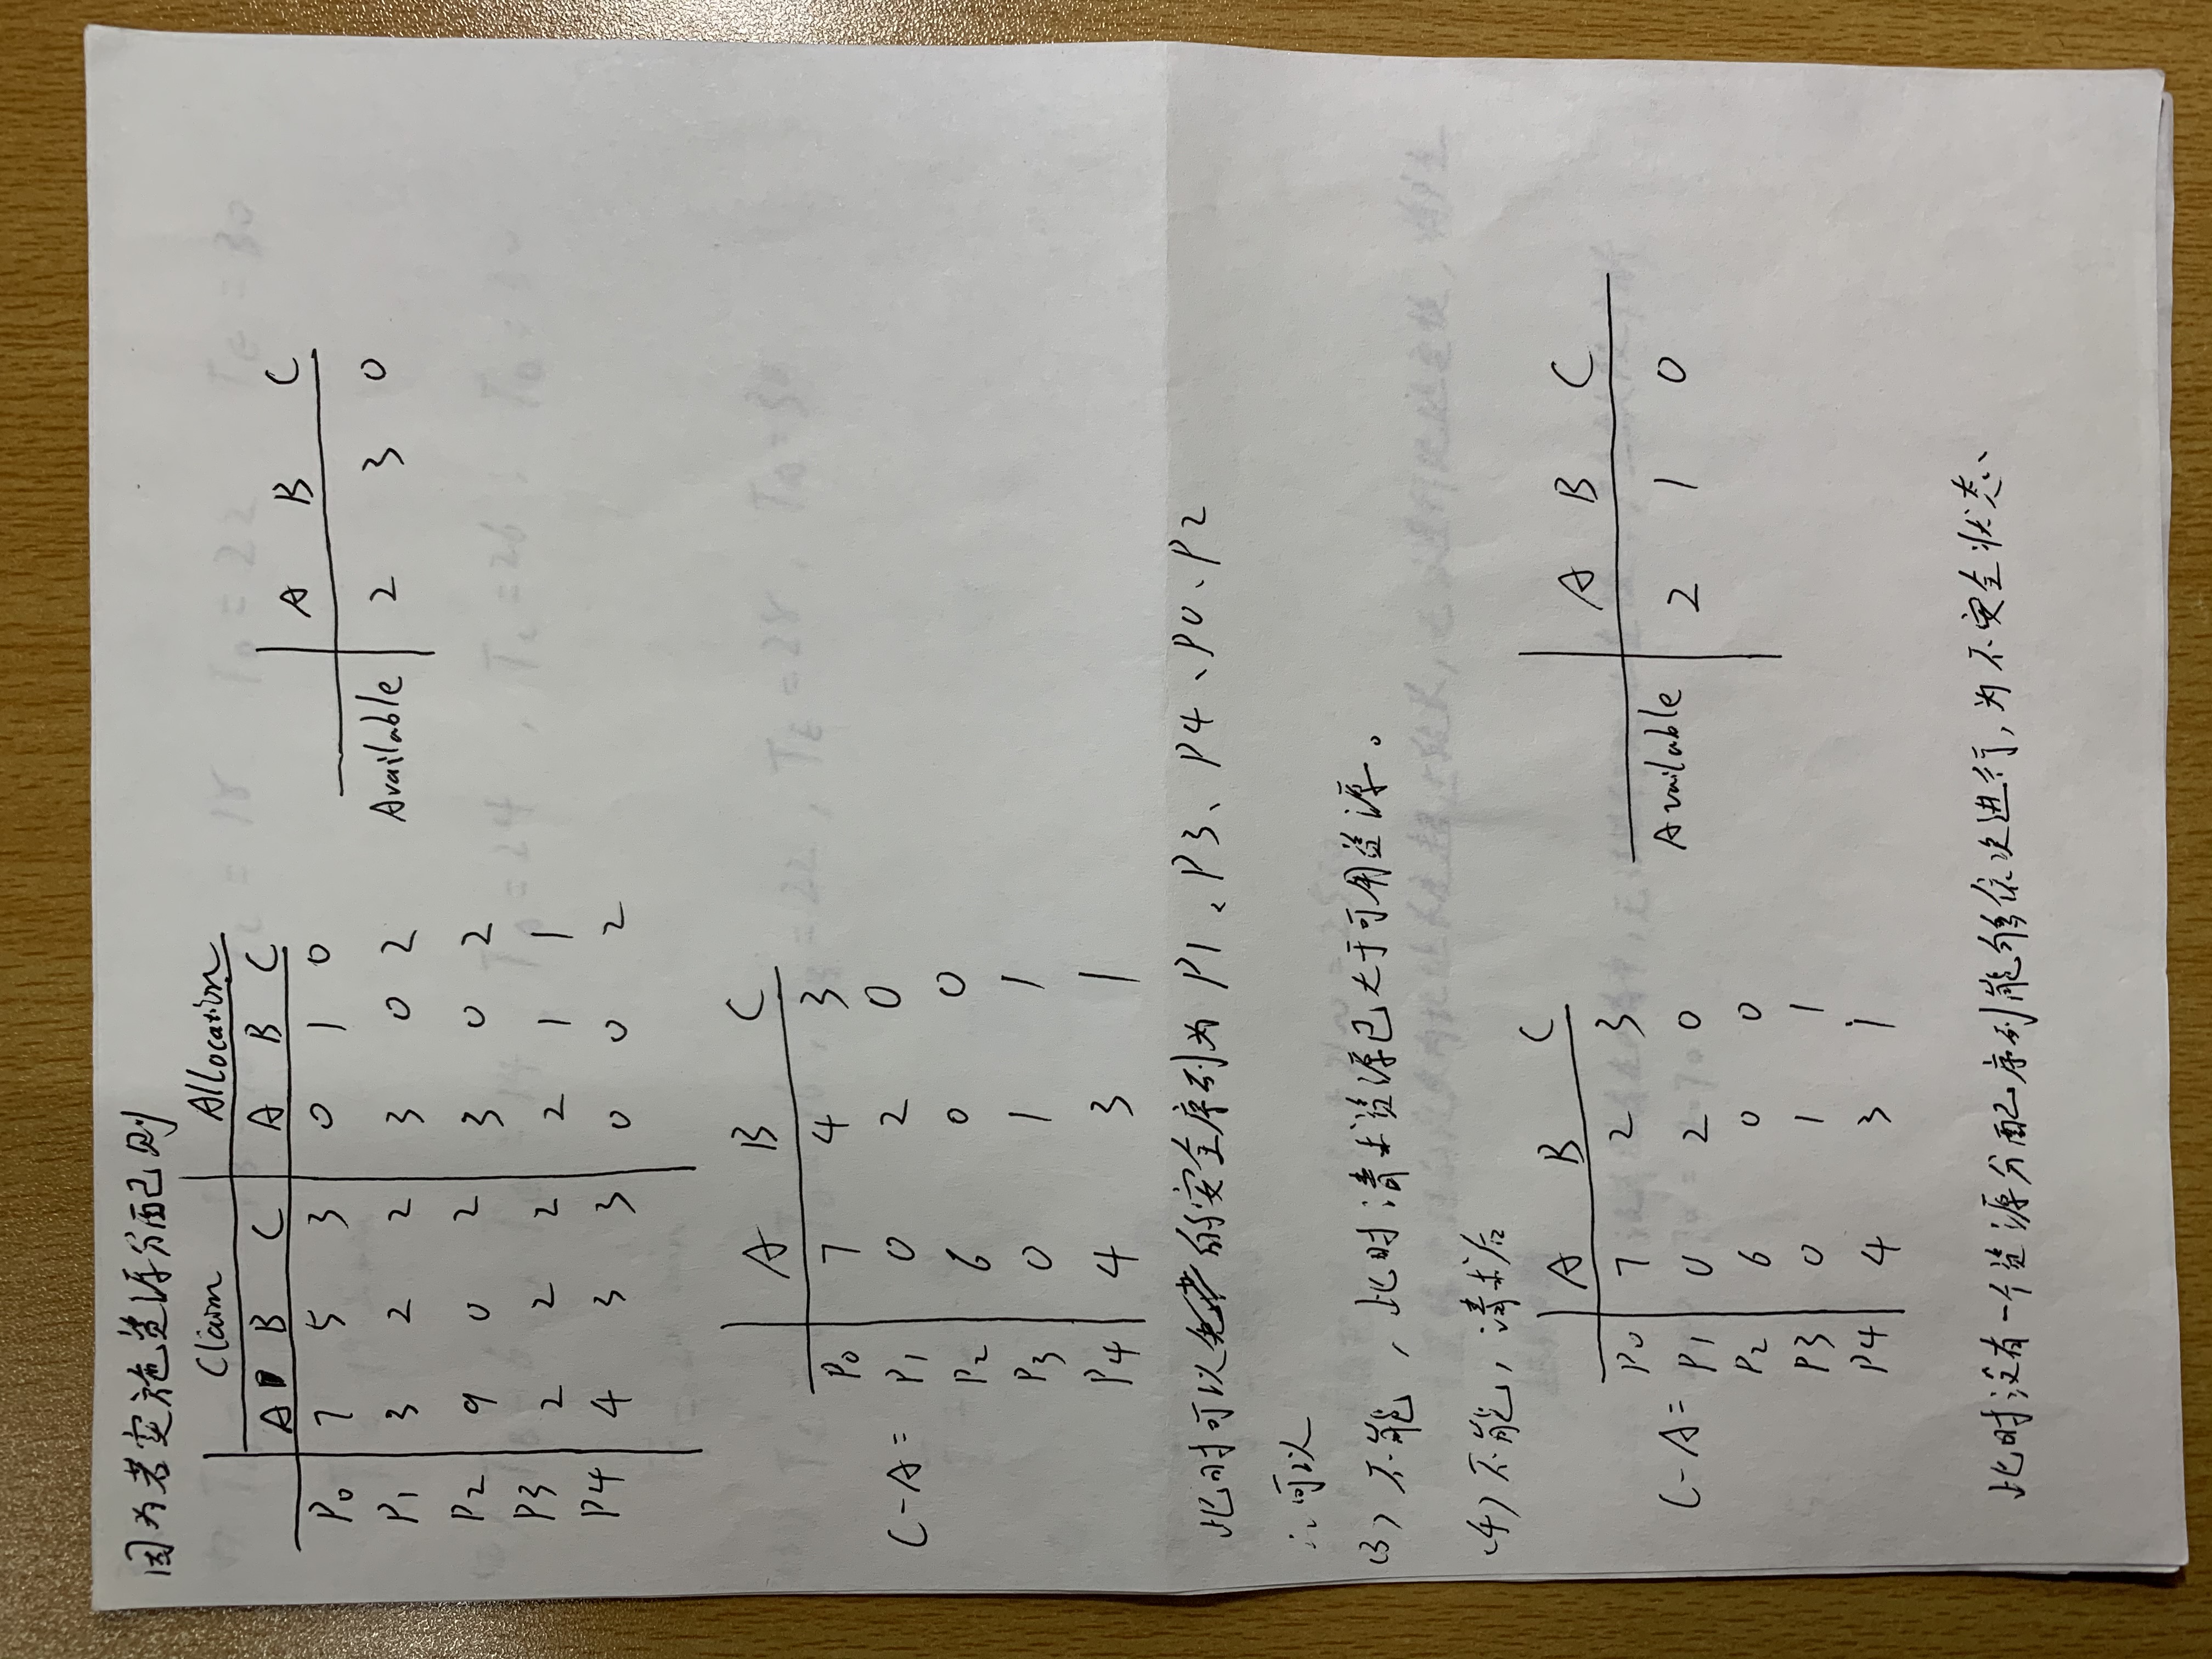 因为若实施资源分配则
Claim Allocation
A B C A B C
P0 7 5 3 0 1 0
P1 3 2 2 3 0 2
P2 9 0 2 3 0 2
P3 2 2 2 2 1 1
P4 4 3 3 0 0 2
A B C
Available 2 3 0
A B C
P0 7 4 3
C-A= P1 0 2 0
P2 6 0 0
P3 0 1 1
P4 4 3 1
此时可以 的安全序列为 P1、P3、P4、P0、P2
∴可以
(3) 不能，此时请求资源已大于可用资源。
(4) 不能，请求后
A B C
P0 7 2 3
C-A= P1 0 2 0
P2 6 0 0
P3 0 1 1
P4 4 3 1
A B C
Available 2 1 0
此时没有一个资源分配序列能够依次进行，为不安全状态、